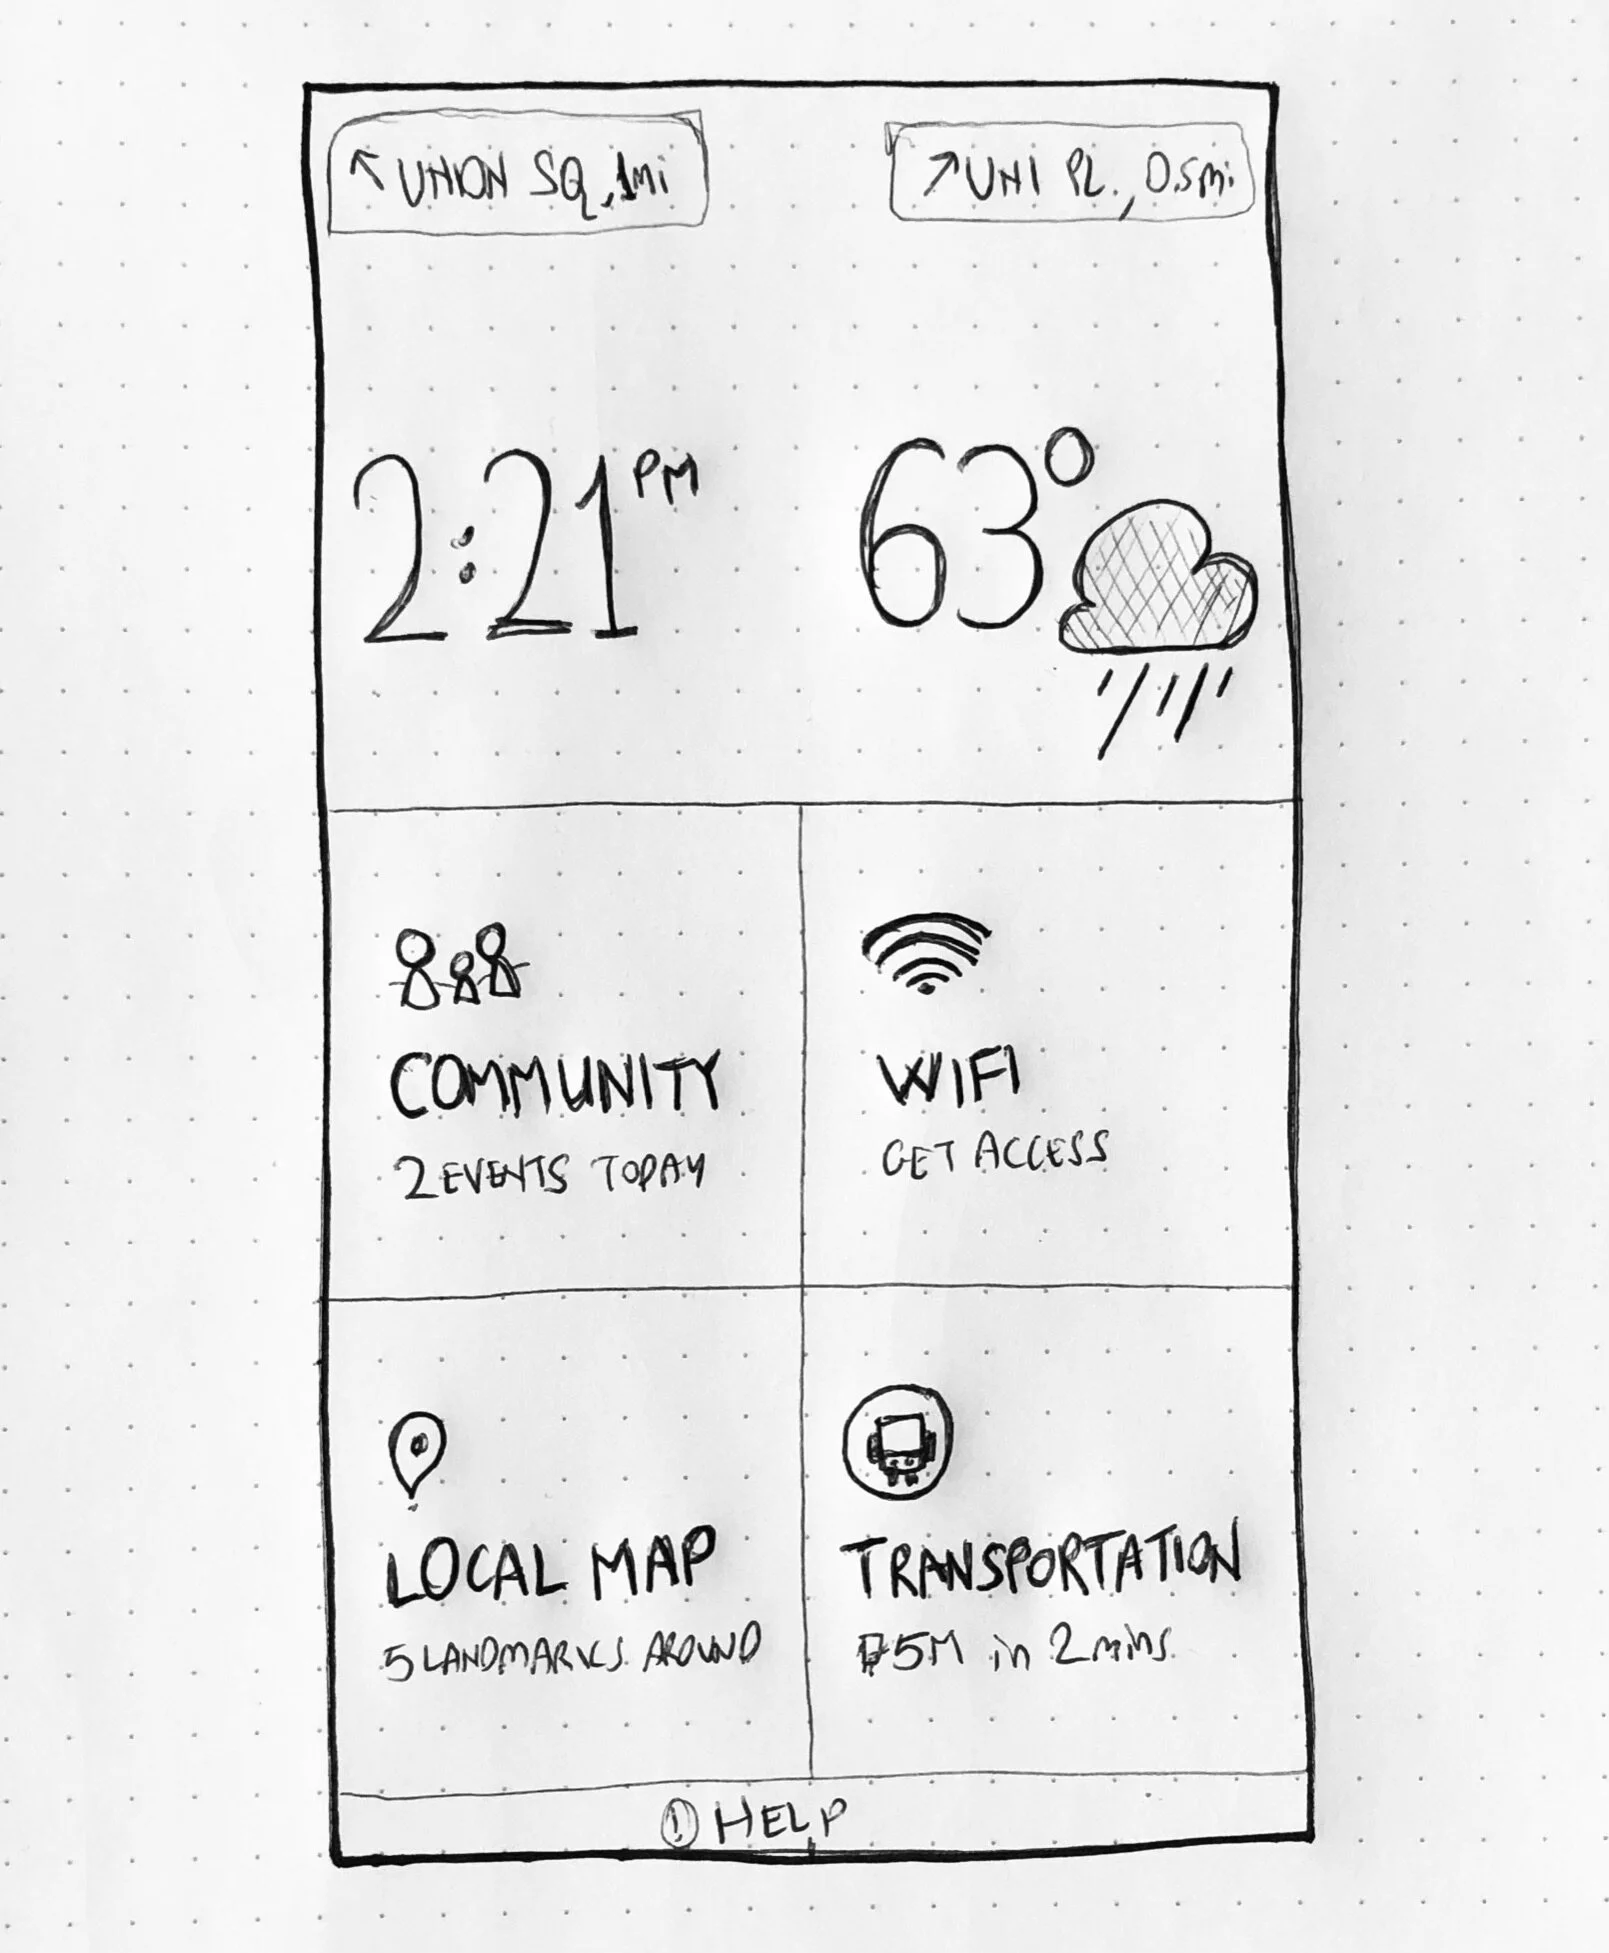 ↖ UNION SQ, 1mi
↗ UNI PL., 0.5mi
2:21 PM
63°
COMMUNITY
2 EVENTS TODAY
WIFI
GET ACCESS
LOCAL MAP
5 LANDMARKS AROUND
TRANSPORTATION
5M in 2 mins.
HELP